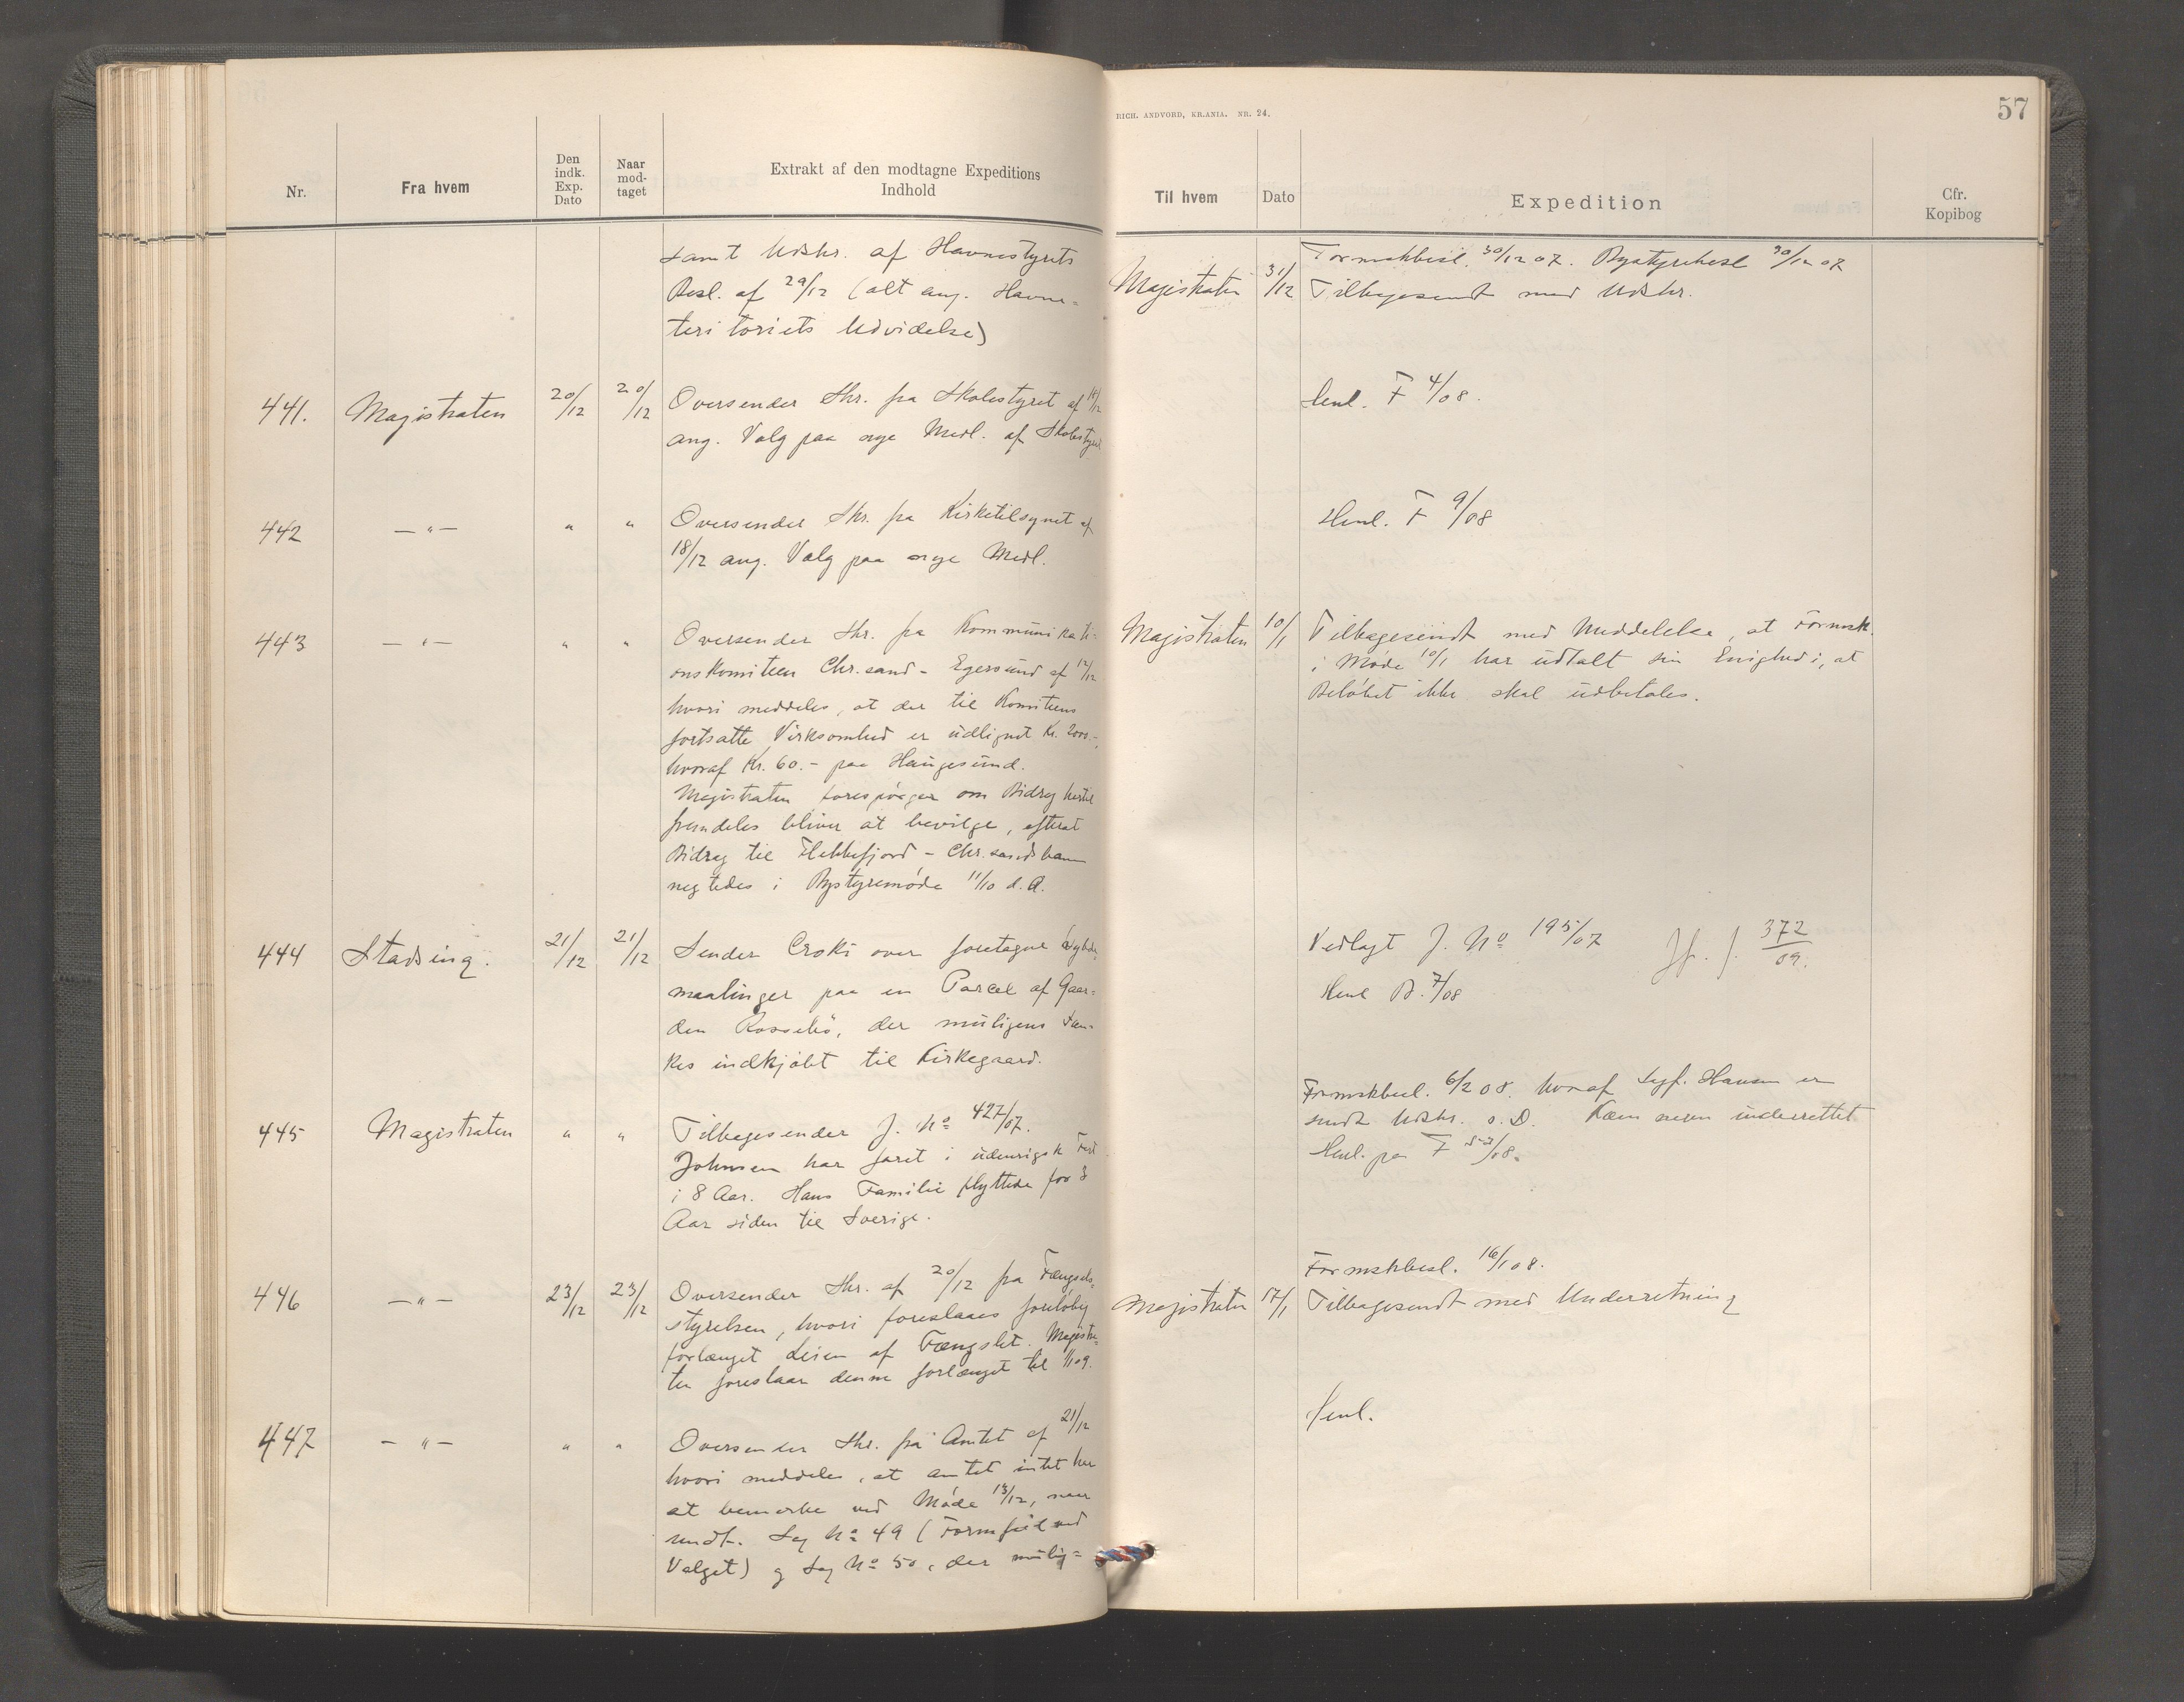 RICH. ANDVORD, KR.ANIA. NR. 24.
57
Nr.
Fra hvem
Den indk. Exp. Dato
Naar mod-taget
Extrakt af den modtagne Expeditions
Indhold
Til hvem
Dato
Expedition
Cfr.
Kopibog
samt Udskr. af Havnestyrets
Besl. af 29/12 (alt ang. Havne-
teritoriets Udvidelse)
Magistraten 31/12
Formskbesl. 30/12 07. Bystyrebesl 30/12 07
Tilbagesendt med Udskr.
441. Magistraten 20/12 20/12
Oversender Skr. fra Skolestyret af 14/12
ang. Valg paa nye Medl. af Skolestyret
Henl. F 4/08.
442 — " — " "
Oversender Skr. fra Kirketilsynet af
18/12 ang. Valg paa nye Medl.
Henl. F 9/08
443 — " — " "
Oversender Skr. fra Kommunikati-
onskomiteen Chr.sand - Egersund af 12/12
hvori meddeles, at der til Komiteens
fortsatte Virksomhed er udlignet Kr. 2000.-,
hvoraf Kr. 60.- paa Haugesund.
Magistraten forespørger om Bidrag hertil
fremdeles bliver at bevilge, efterat
Bidrag til Flekkefjord - Chr.sandsbanen
negtedes i Bystyremøde 11/10 d. A.
Magistraten 10/1
Tilbagesendt med Meddelelse, at Formsk.
i Møde 10/1 har udtalt sin Enighed i, at
Beløbet ikke skal udbetales.
444 Stadsing. 21/12 21/12
Sender Croki over foretagne Dybde
maalinger paa en Parcel af Gaar-
den Rossebø, der muligens tæn-
kes indkjøbt til Kirkegaard.
Vedlagt J. No 195/07 Jfr. J. 372/09.
Henl B. 7/08
445 Magistraten " "
Tilbagesender J. No 427/07.
Johnsen har faret i udenrigsk Fart
i 8 Aar. Hans Familie flyttede for 3
Aar siden til Sverige.
Formskbesl. 6/2 08. hvoraf Hansen er
sendt Udskr. s. D. Kæmneren underrettet
Henl. paa F 53/08.
446 — " — 23/12 23/12
Oversender Skr. af 20/12 fra Fængsels-
styrelsen, hvori foreslaaes foreløbig
forlænget Leien af Fængslet. Magistra-
ten foreslaar denne forlænget til 1/1 09.
Magistraten 17/1
Formskbesl. 16/1 08.
Tilbagesendt med Underretning
447 — " — " "
Oversender Skr. fra Amtet af 21/12
hvori meddeles, at amtet intet har
at bemerke ved Møde 13/12, naar
undt. Sag No 49 (Formfeil ved
Valget) og Sag No 50, der mulig=
Henl.